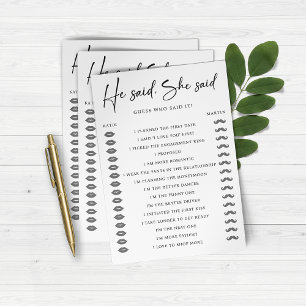 He said, She said
GUESS WHO SAID IT!
KATIE
MARTIN
I PLANNED THE FIRST DATE
I SAID I LIKE YOU FIRST
I PICKED THE ENGAGEMENT RING
I PROPOSED
I AM MORE ROMANTIC
I WEAR THE PANTS IN THE RELATIONSHIP
I'M PLANNING THE HONEYMOON
I'M THE BETTER DANCER
I'M THE FUNNY ONE
I'M THE BETTER DRIVER
I INITIATED THE FIRST KISS
I TAKE LONGER TO GET READY
I'M THE NEAT ONE
I'M MORE PATIENT
I LOVE TO SHOP MORE